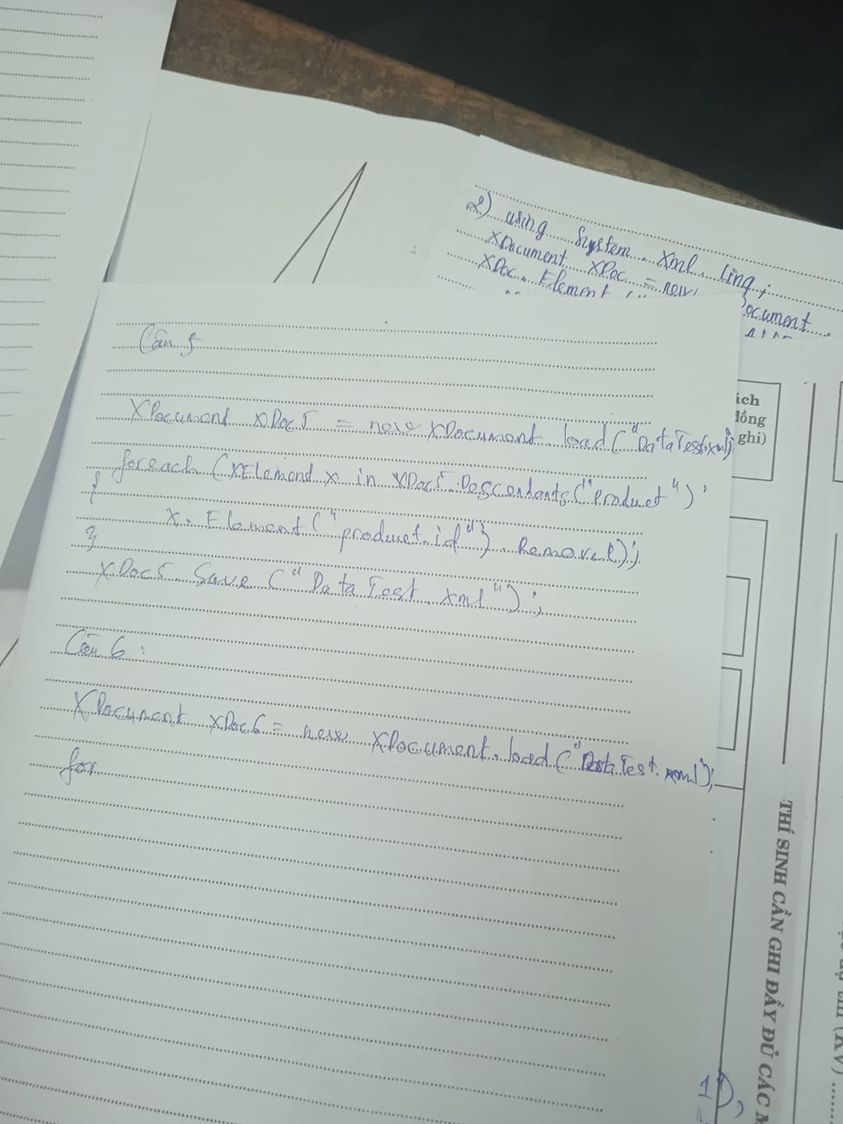 2) using System. Xml. Linq;
XDocument XDoc = new
ocument
XDoc. Element (
ích
đồng
ghi)
Câu 5
XDocument xDoc5 = new XDocument. load ("DataTest.xml");
foreach (XElement x in XDoc5.Descendants ("product")
{
x. Element ("product.id"). Remove();
}
XDoc5. Save ("DataTest. xml");
Câu 6 :
XDocument xDoc6 = new XDocument. load ("DataTest. xml");
for
THÍ SINH CẦN GHI ĐẦY ĐỦ CÁC M